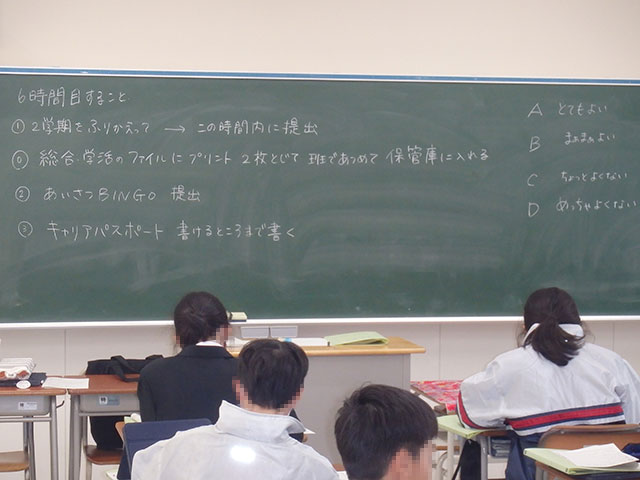 6時間目すること
① 2学期をふりかえって → この時間内に提出
⓪ 総合・学活のファイルにプリント 2枚とじて 班であつめて 保管庫に入れる
② あいさつBINGO 提出
③ キャリアパスポート 書けるところまで書く
A とてもよい
B まあまあよい
C ちょっとよくない
D めっちゃよくない